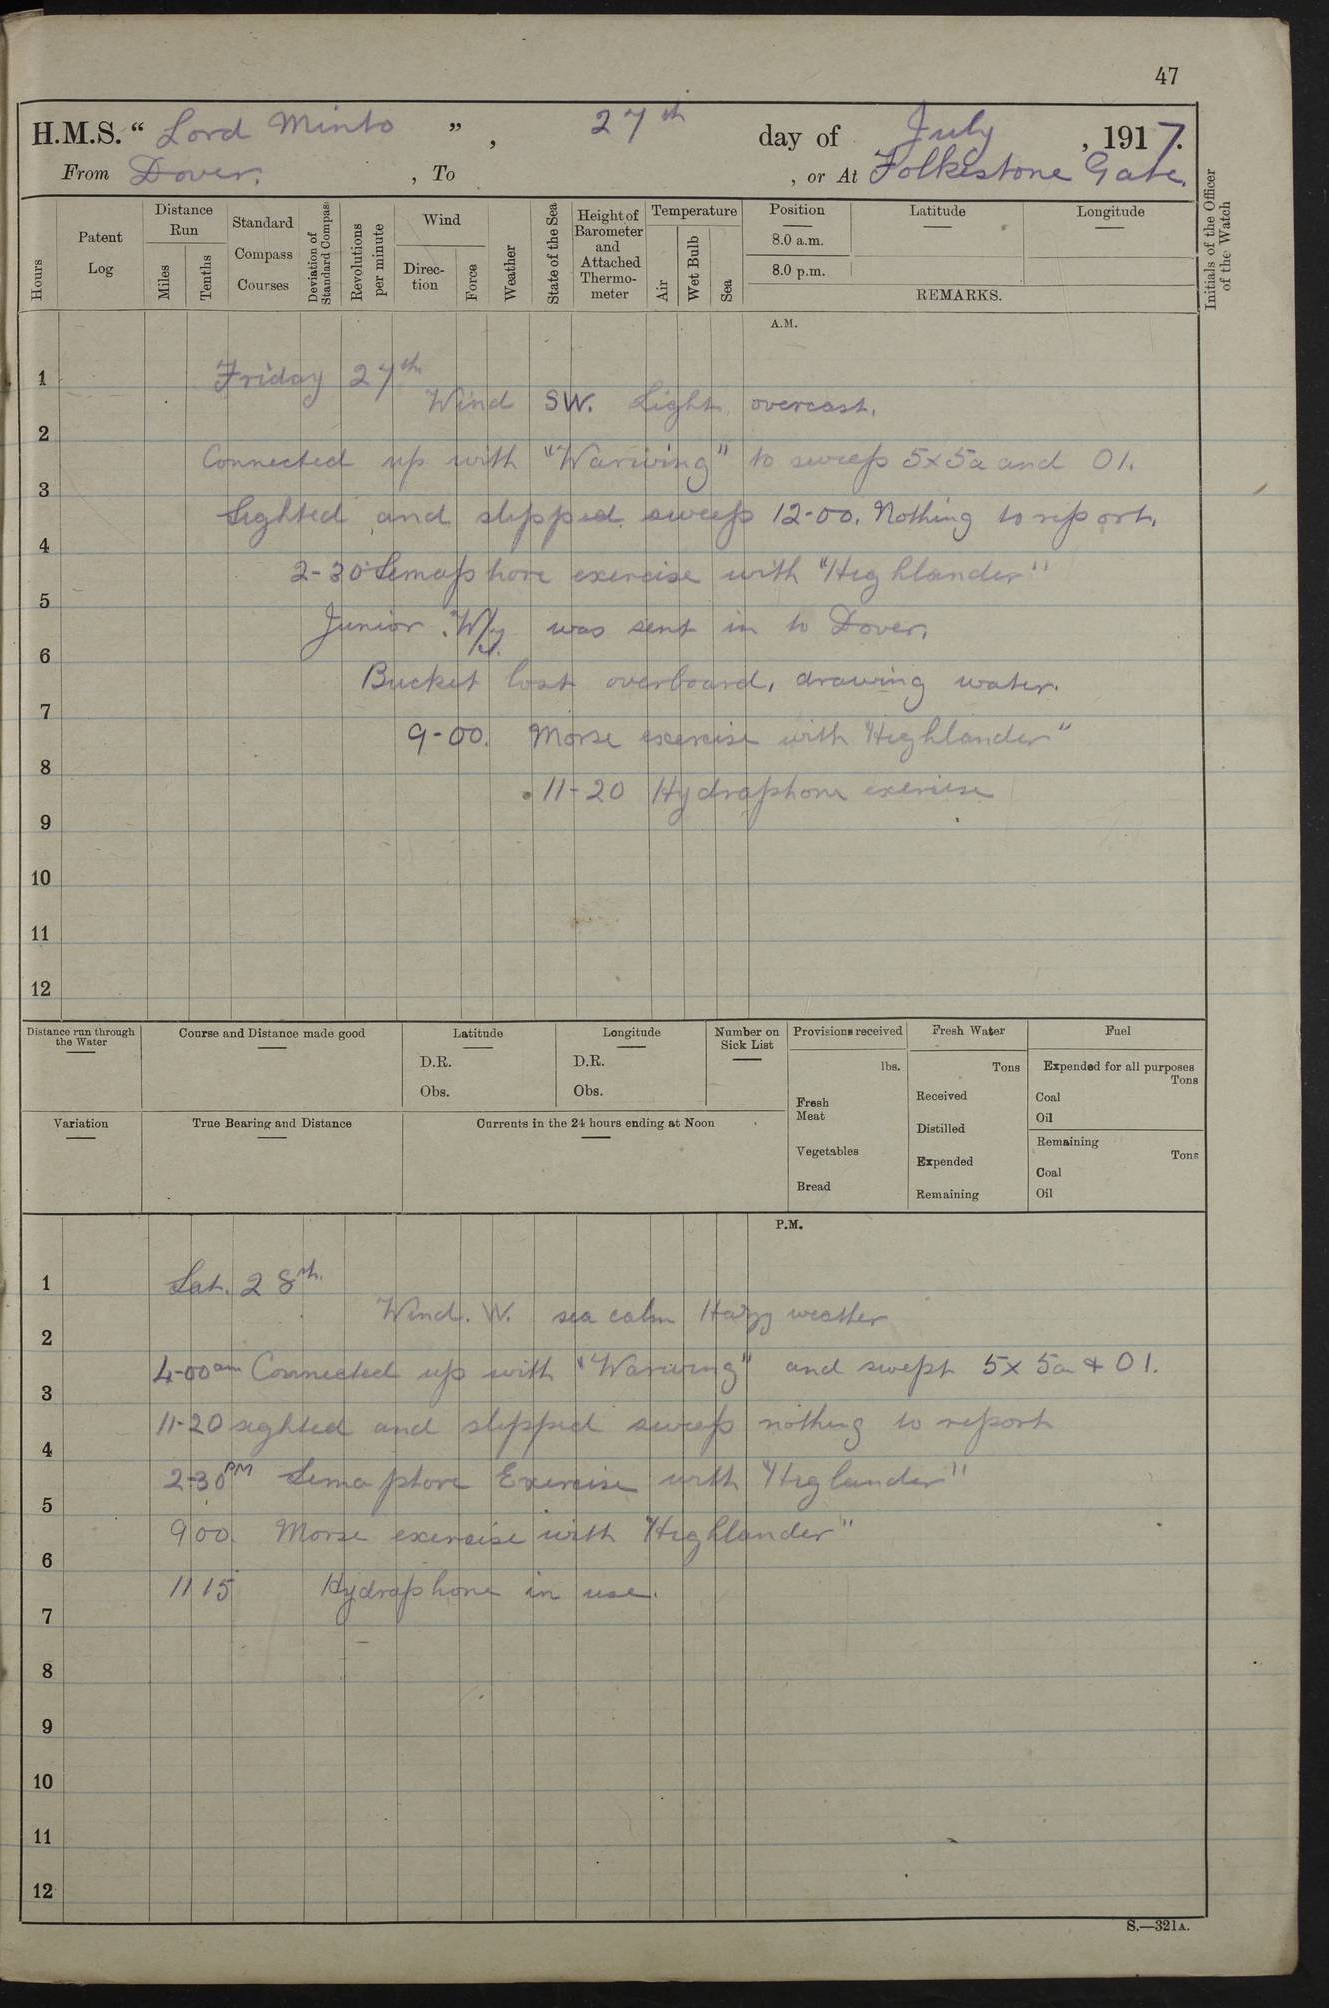 47
H.M.S. “ Lord Minto ” , 27th day of July , 1917.
From Dover. , To , or At Folkestone Gate.
Hours
Patent Log
Distance Run
Miles
Tenths
Standard Compass Courses
Deviation of Standard Compass
Revolutions per minute
Wind
Direc-tion
Force
Weather
State of the Sea
Height of Barometer and Attached Thermo-meter
Temperature
Air
Wet Bulb
Sea
Position
8.0 a.m.
8.0 p.m.
Latitude
Longitude
REMARKS.
Initials of the Officer of the Watch
A.M.
1
Friday 27th
Wind SW. Light overcast.
2
Connected up with "Warwing" to sweep 5x5a and O1.
3
Sighted and slipped sweep 12-00. Nothing to report.
4
2-30 Semaphore exercise with "Highlander"
5
Junior W/y was sent in to Dover.
6
Bucket lost overboard, drawing water.
7
9-00. Morse exercise with "Highlander"
8
11-20 Hydraphone exeriese
9
10
11
12
Distance run through the Water
Course and Distance made good
Latitude
D.R.
Obs.
Longitude
D.R.
Obs.
Number on Sick List
Provisions received
lbs.
Fresh Meat
Vegetables
Bread
Fresh Water
Tons
Received
Distilled
Expended
Remaining
Fuel
Expended for all purposes
Tons
Coal
Oil
Remaining
Tons
Coal
Oil
Variation
True Bearing and Distance
Currents in the 24 hours ending at Noon
P.M.
1
Sat. 28th.
Wind. W. sea calm Hazy weather
2
4-00 am Connected up with "Warwing" and swept 5x 5a & O1.
3
11-20 sighted and slipped sweep nothing to report
4
2-30 PM Semaphore Exercise with "Higlander"
5
9 00. Morse exercise with "Highlander"
6
11 15 Hydraphone in use.
7
8
9
10
11
12
S.—321A.